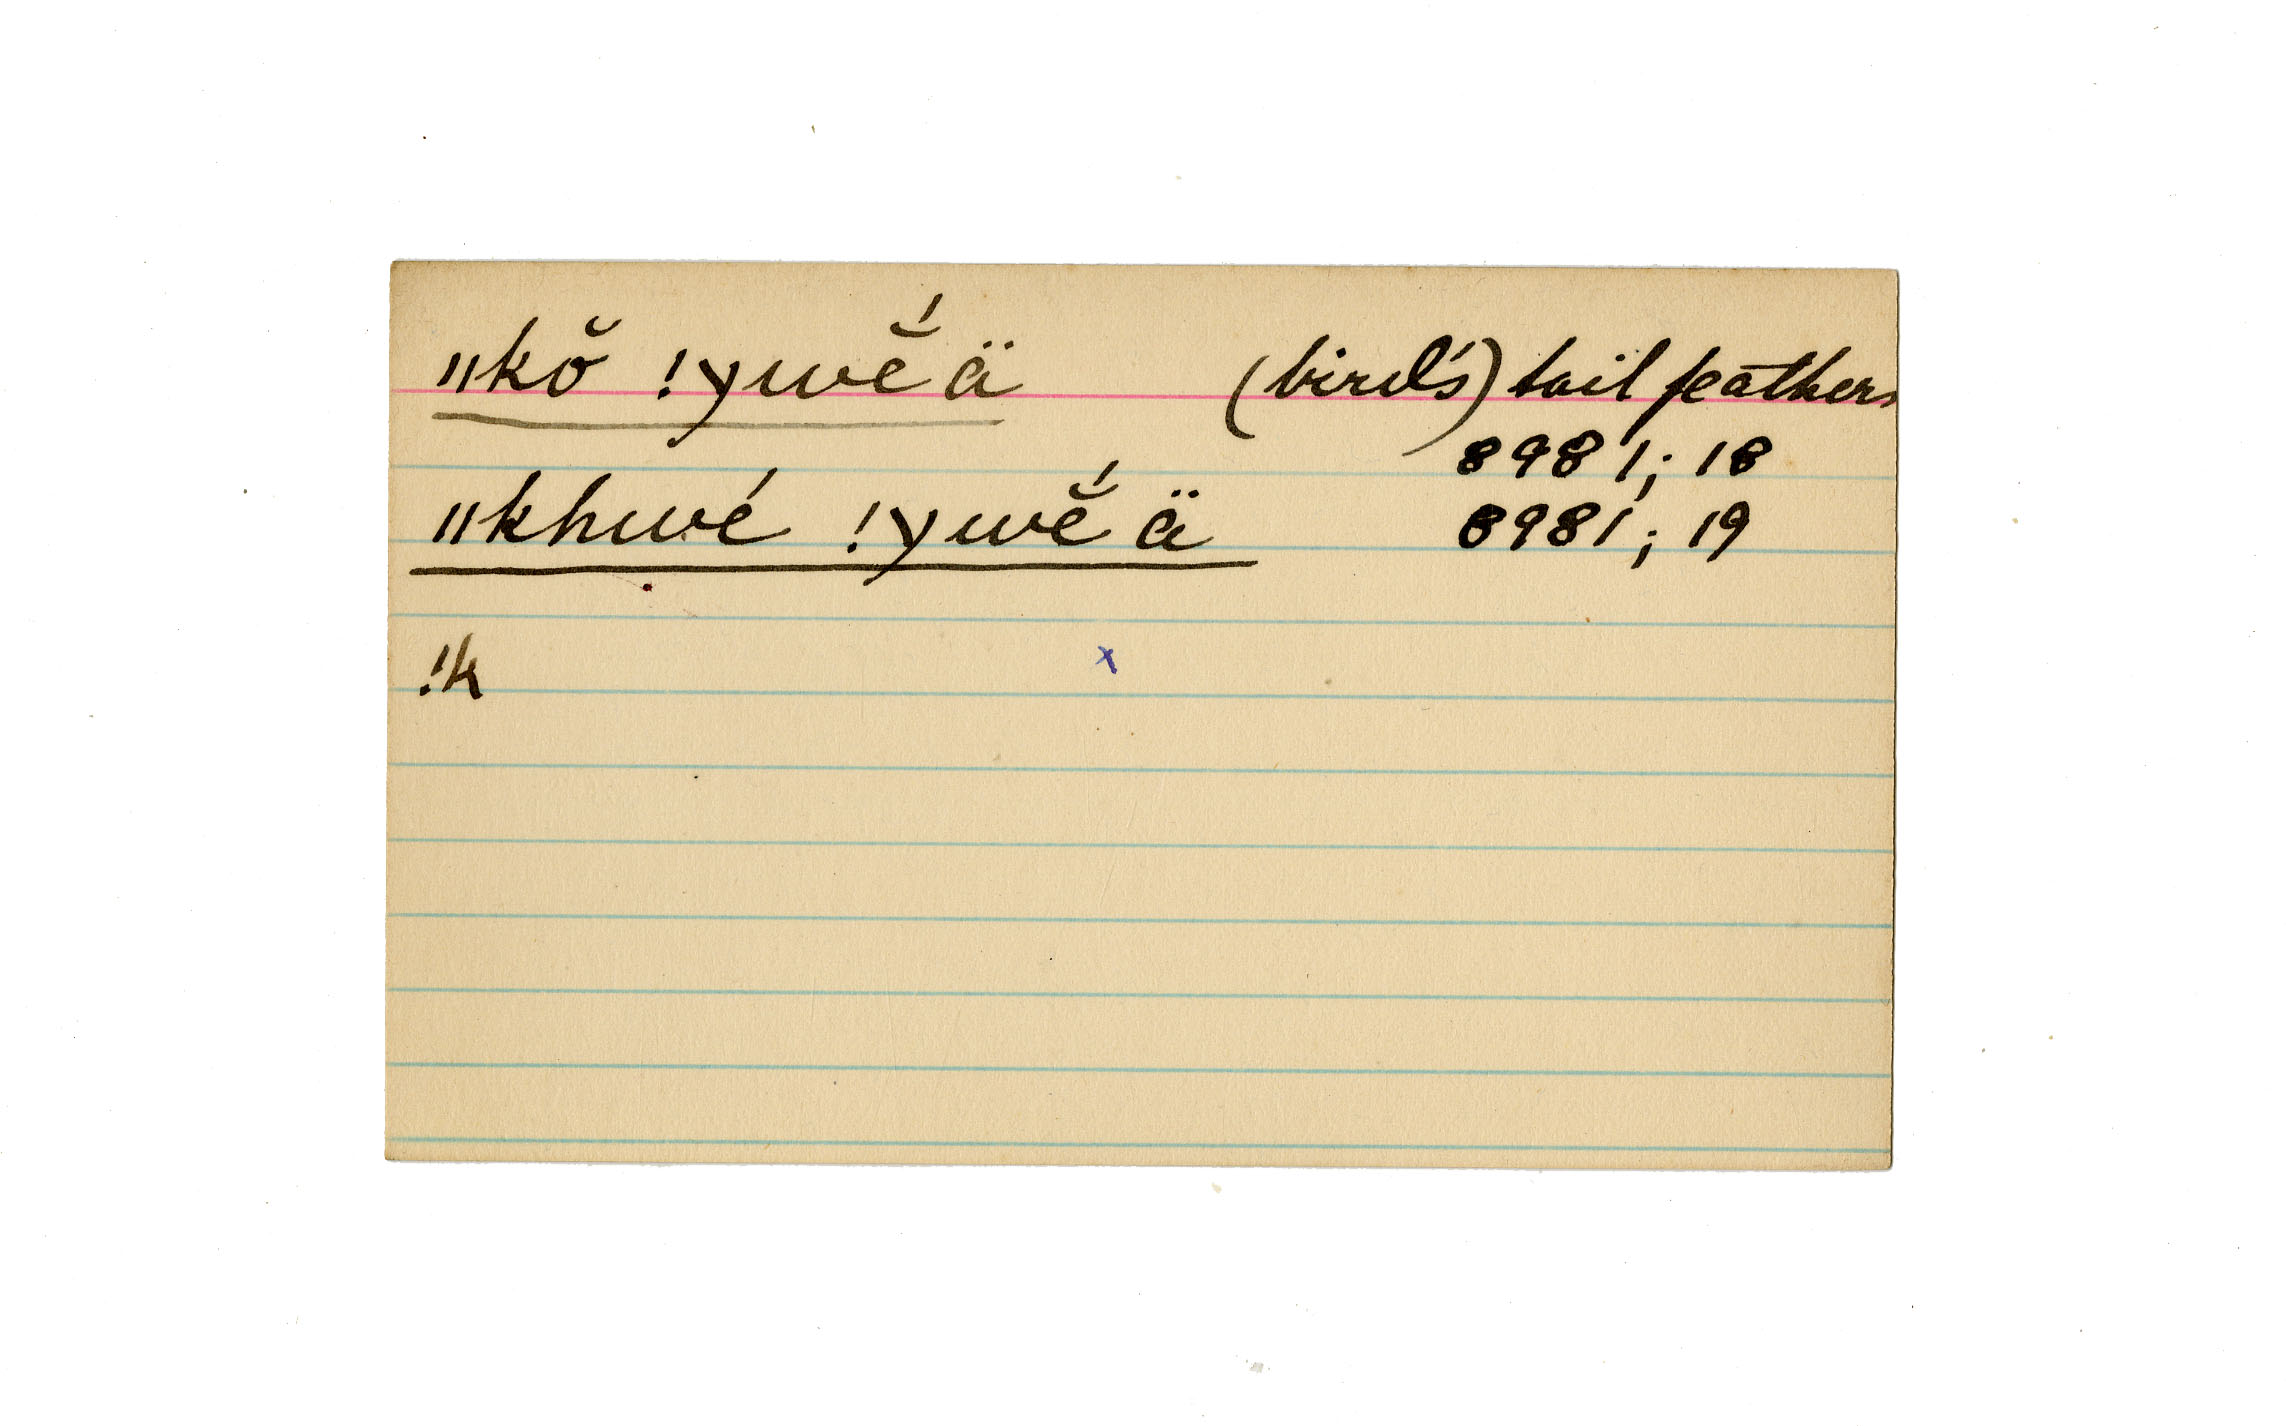 ǁkŏ !χwĕ́ ä (bird's) tail feathers
8981; 18
ǁkhwé !χwĕ́ ä 8981'; 19
!k x